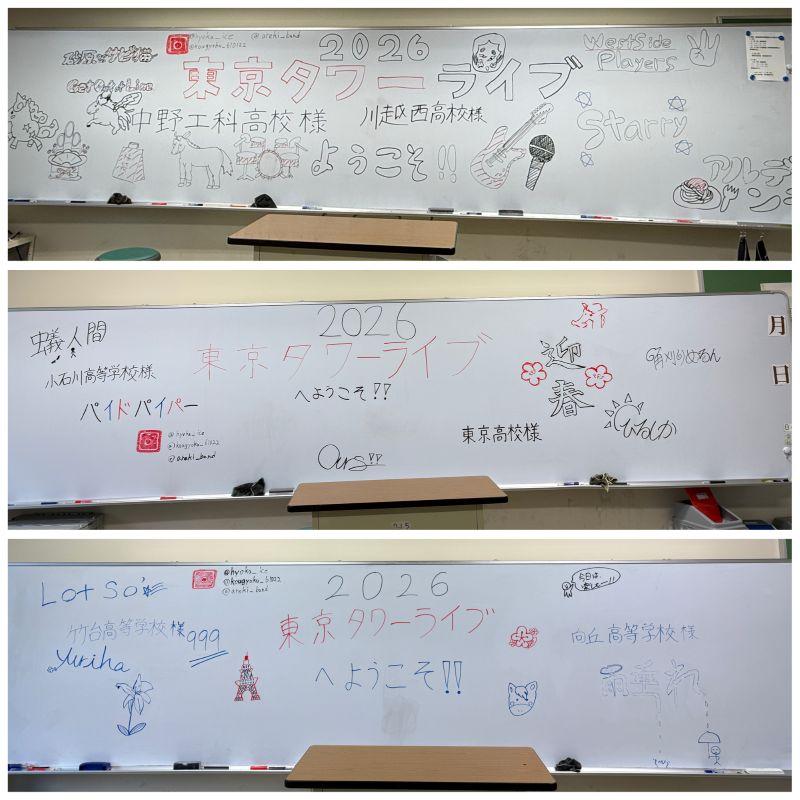 @hyoka_ice
@areki_band
@kougyoku_61022
2026
東京タワーライブ
砂原のサビ猫
Get Out of Line
中野工科高校様
川越西高校様
ようこそ!!
WestSide
Players
Starry
アルデ
2026
東京タワーライブ
へようこそ!!
蟻人間
小石川高等学校様
パイドパイパー
@hyoka_ice
@kougyoku_61022
@areki_band
Ours!!
迎
春
東京高校様
ひるしか
月
日
Lot So's
@hyoka_ice
@kougyoku_61022
@areki_band
2026
東京タワーライブ
へようこそ!!
竹台高等学校様
999
yuriha
今日は、
楽しー!!
向丘高等学校様